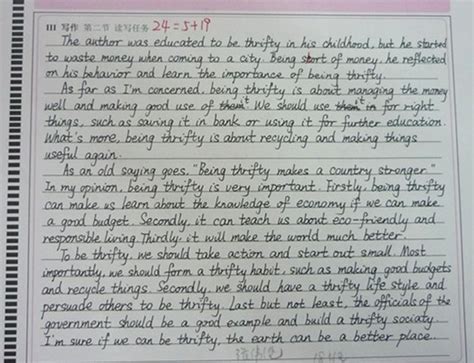 III 写作 第二节 读写任务 24=5+19
The author was educated to be thrifty in his childhood, but he started
to waste money when coming to a city. Being short of money, he reflected
on his behavior and learn the importance of being thrifty.
As far as I'm concerned, being thrifty is about managing the money
well and making good use of them it. We should use them it in for right
things, such as saving it in bank or using it for further education.
What's more, being thrifty is about recycling and making things
useful again.
As an old saying goes. "Being thrifty makes a country stronger."
In my opinion, being thrifty is very important. Firstly, being thrifty
can make us learn about the knowledge of economy if we can make
a good budget. Secondly, it can teach us about eco-friendly and
responsible living. Thirdly, it will make the world much better.
To be thrifty, we should take action and start out small. Most
importantly, we should form a thrifty habit, such as making good budgets
and recycle things. Secondly, we should have a thrifty life style and
persuade others to be thrifty. Last but not least, the officials of the
government should be a good example and build a thrifty sociaty.
I'm sure if we can be thrifty, the earth can be a better place.